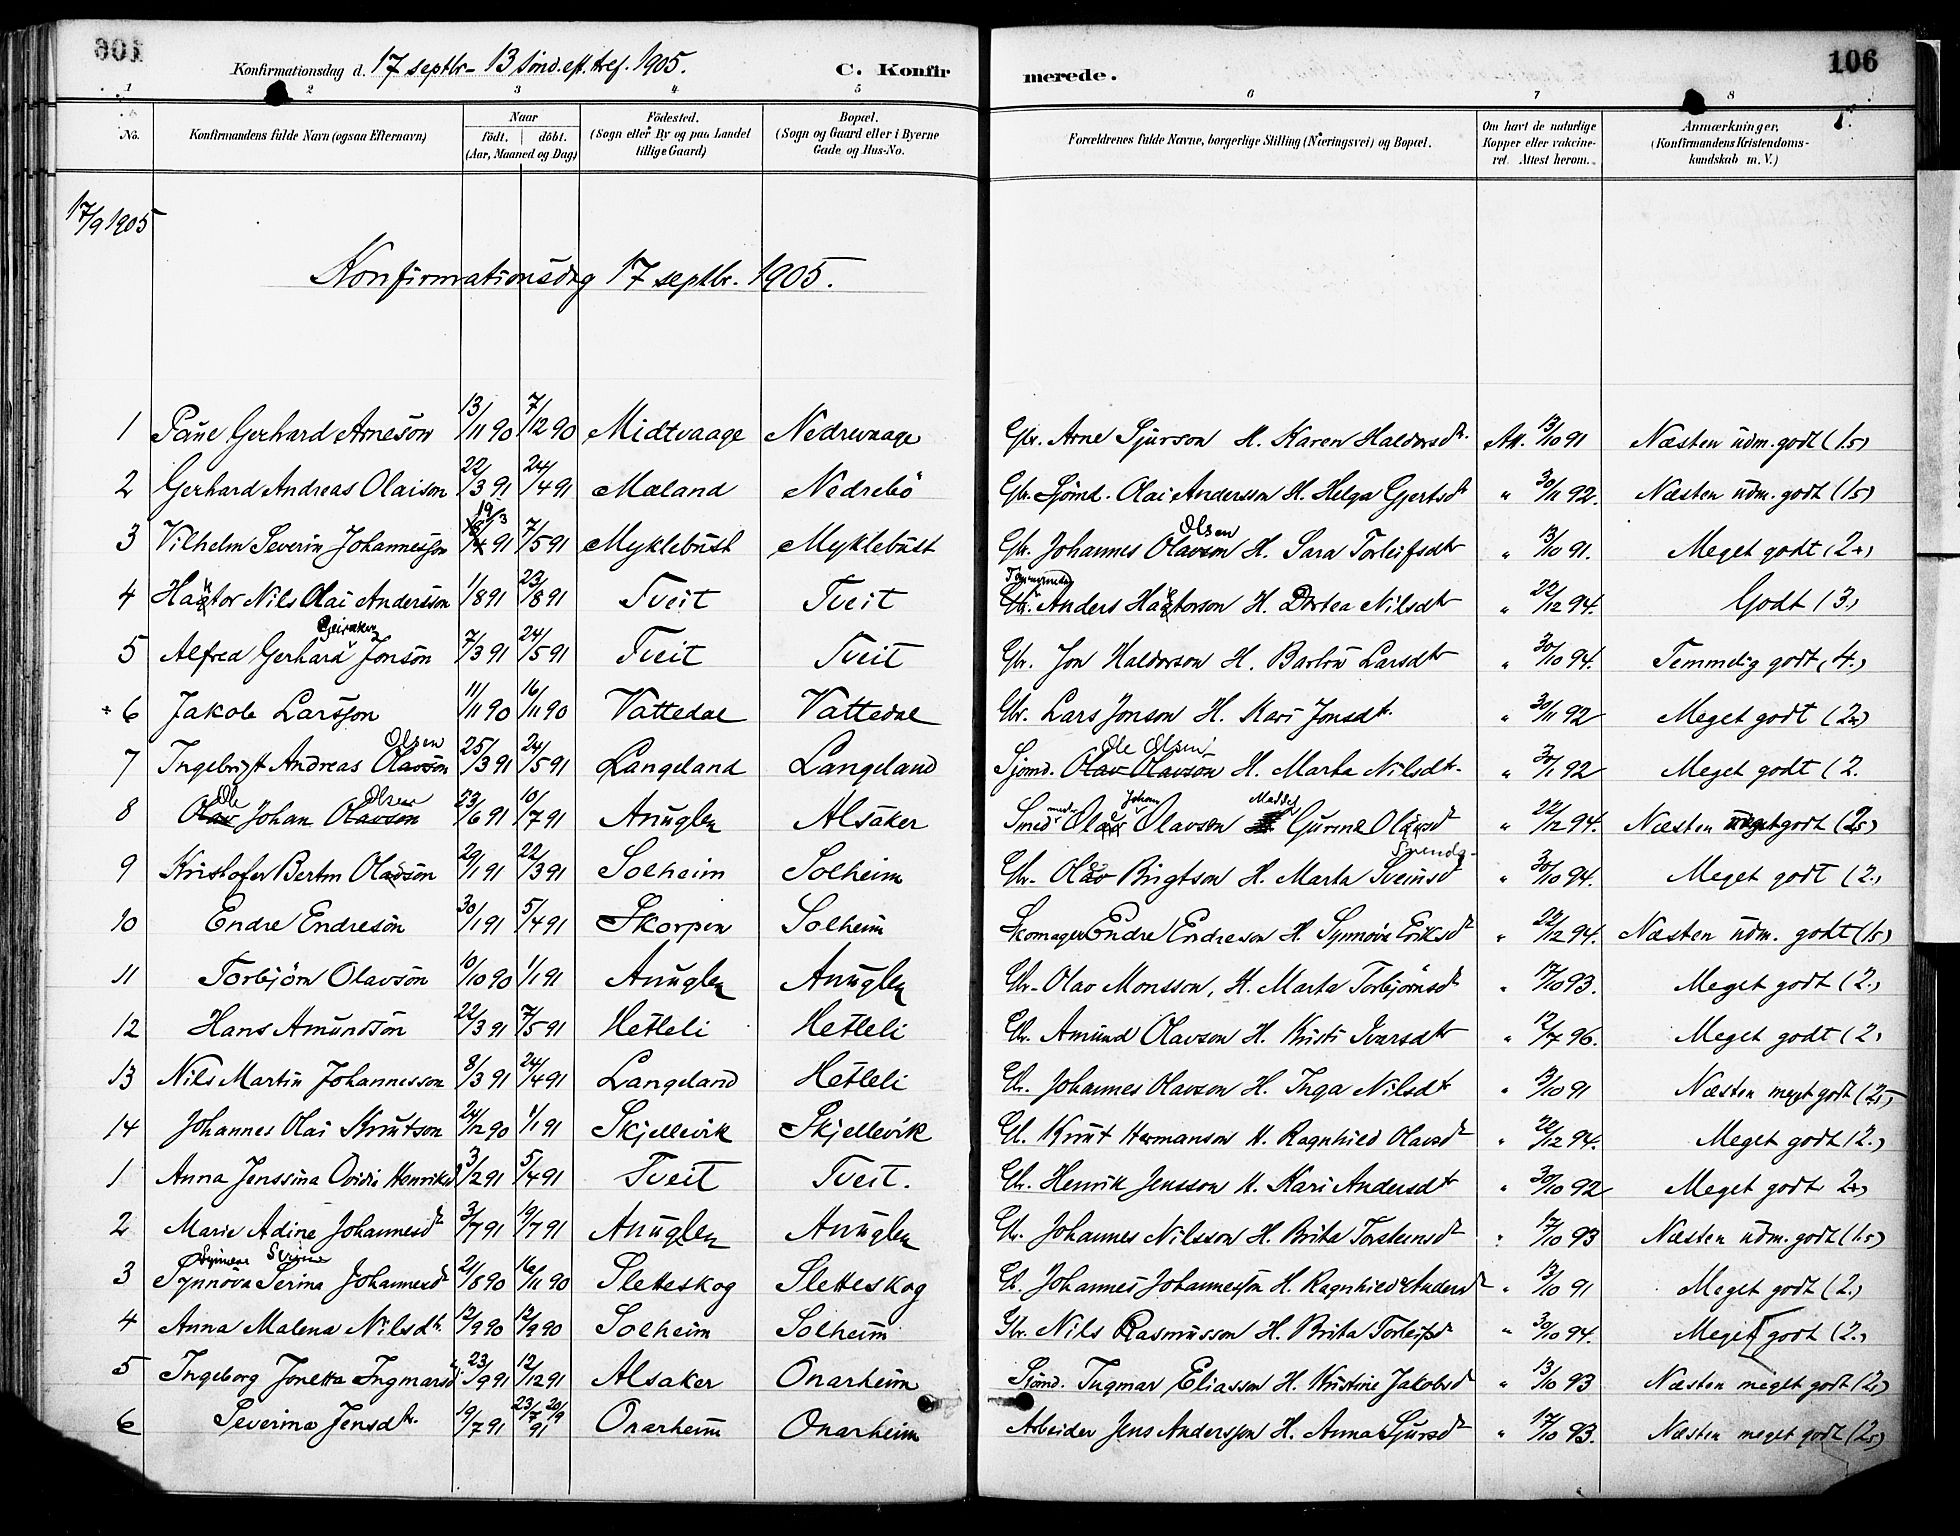 106
Konfirmationsdag d. 17 septbr - 13 sönd. eft. tref. 1905.
C. Konfirmerede.
106
1 2 3 4 5 6 7 8
No.
Konfirmandens fulde Navn (ogsaa Efternavn)
Naar
födt. döbt.
(Aar, Maaned og Dag)
Födested.
(Sogn eller By og paa Landet
tillige Gaard)
Bopæl.
(Sogn og Gaard eller i Byerne
Gade og Hus-No.
Forældrenes fulde Navne, borgerlige Stilling (Næringsvei) og Bopæl.
Om havt de naturlige
Kopper eller vakcine-
ret. Attest herom.
Anmærkninger,
(Konfirmandens Kristendoms-
kundskab m. V.)
17/9 1905
Konfirmationsdag 17 septbr. 1905.
1 Gerhard Arneson 13/11 90 7/12 90 Midtvaage Nedrevaage Gbr. Arne Sjurson H. Karen Haldorsdtr. Att. 13/10 91 Næsten udm. godt (1.5)
2 Gerhard Andreas Olaison 22/3 91 24/4 91 Mæland Nedrebö Gbr. Sjömd. Olai Andersson H. Helga Gjertsdtr " 30/11 92. Næsten udm. godt (1.5)
3 Vilhelm Severin Johannesson 19/3 91 7/5 91 Myklebust Myklebust Gbr. Johannes Olavson Olsen H. Sara Torleifsdtr " 13/10 91. Meget godt (2.)
4 Haktor Nils Olai Andersson 1/8 91 23/8 91 Tveit Tveit Anders Haktorson H. Dortea Nilsdtr " 22/12 94. Godt (3.)
5 Alfred Gerhard Jonson 7/3 91 24/5 91 Tveit Tveit Gbr. Jon Haldorson H. Larsdtr " 30/10 94. Temmelig godt (4.)
6 Jakob Larsson 11/11 90 16/11 90 Vattedal Vattedal Gbr. Lars Jonson H. Kari Jonsdtr. " 30/11 92 Meget godt (2.)
7 Ingebrigt Andreas Olavson Olsen 25/3 91 24/5 91 Langeland Langeland Sjömd. Olav Olavson Ole Olsen H. Marta Nilsdtr. " 30/11 92 Meget godt (2.
8 Olav Ole Johan Olavson Olsen 23/6 91 10/7 91 Anuglen Alsaker Smed Olav Johan Olavson Gurine Olavsdtr " 22/12 94. Næsten meget godt (2.5)
9 Kristofer Bertin Olavson 29/1 91 22/3 91 Solheim Solheim Gbr. Olav Brigtson H. Marta Sveinsdtr " 30/10 94. Meget godt (2.)
10 Endre Endreson 30/1 91 5/4 91 Skorpen Solheim Skomager Endre Endreson H. Synnöva Eriksdtr " 22/12 94. Næsten udm. godt (1.5)
11 Torbjörn Olavson 10/10 90 1/1 91 Anuglen Anuglen Gbr. Olav Monsson, H. Marta Torbjörnsdtr " 17/10 93. Meget godt (2.)
12 Hans Amundson 22/3 91 7/5 91 Hetleli Hetleli Gbr. Amund Olavson H. Kristi Ivarsdtr " 12/7 96. Meget godt (2.
13 Nils Martin Johannesson 8/3 91 24/4 91 Langeland Hetleli Gbr. Johannes Olavson H. Inga Nilsdtr " 13/10 91 Næsten meget godt (2.5)
14 Johannes Olai Knutson 24/12 90 1/1 91 Skjellevik Skjellevik Gbr. Knut Hermanson H. Ragnhild Olavsdtr " 22/12 94. Meget godt (2.)
1 Anna Jenssina Henriksd 3/2 91 5/4 91 Tveit Tveit. Gbr. Henrik Jensson H. Kari Andersdtr " 30/10 92 Meget godt (2.)
2 Marie Adine Johannesdtr 3/7 91 19/7 91 Anuglen Anuglen Gbr. Johannes Nilsson H. Brita Torsteinsdtr " 17/10 93 Næsten udm. godt (1.5)
3 Synnöva Serina Johannesdtr 21/8 90 16/11 90 Sletteskog Sletteskog Gbr. Johannes Johannesson H. Ragnhild Andersdtr " 13/10 91 Meget godt (2.)
4 Anna Malena Nilsdtr. 12/9 90 12/9 90 Solheim Solheim Gbr. Nils Rasmusson H. Brita Torleifsdtr " 30/10 94. Meget godt (2.)
5 Ingeborg Jonetta Ingmarsd 23/9 91 12/12 91 Alsaker Onarheim Sjömd. Ingmar Eliasson H. Kristine Jakobsdtr " 13/10 93 Næsten meget godt (2.5)
6 Severina Jensdtr. 19/7 91 Onarheim Onarheim Arbeider Jens Andersson H. Anna Sjursdtr " 17/10 93. Næsten meget godt (2.5)